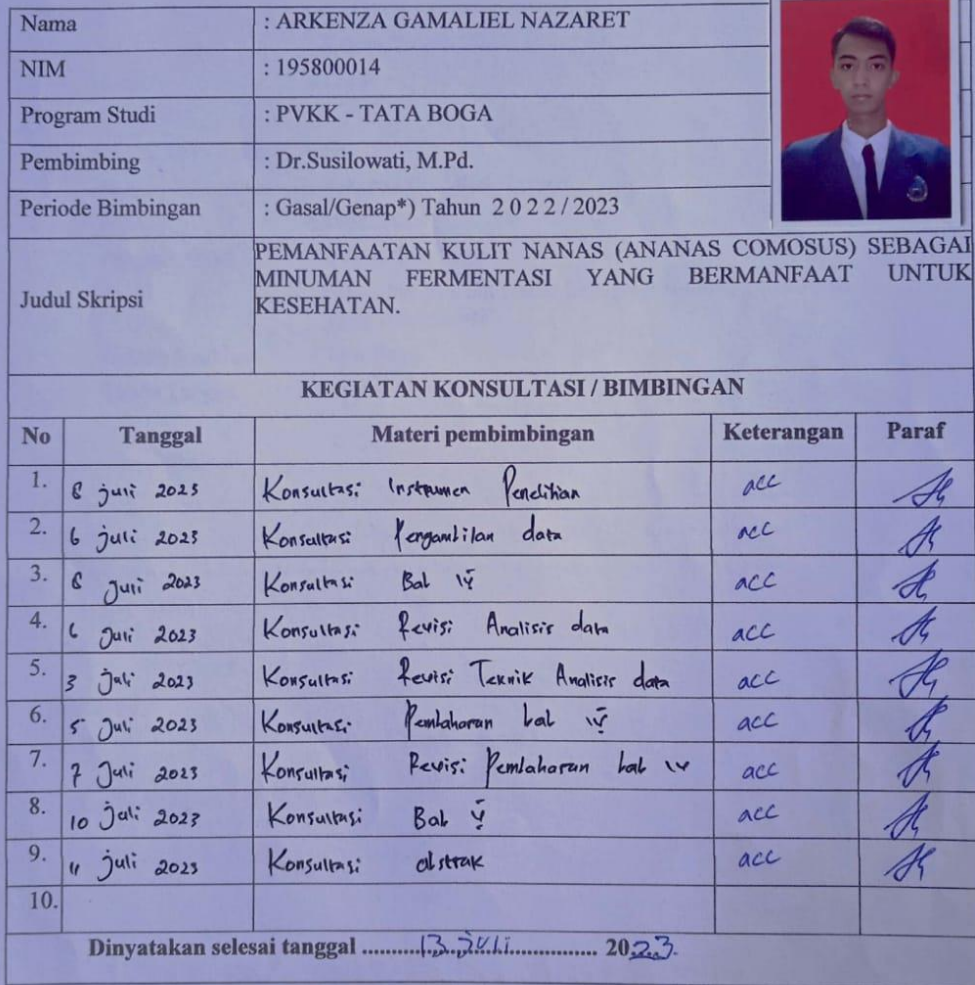 Nama : ARKENZA GAMALIEL NAZARET
NIM : 195800014
Program Studi : PVKK - TATA BOGA
Pembimbing : Dr.Susilowati, M.Pd.
Periode Bimbingan : Gasal/Genap*) Tahun 2 0 2 2 / 2023
Judul Skripsi PEMANFAATAN KULIT NANAS (ANANAS COMOSUS) SEBAGAI
MINUMAN FERMENTASI YANG BERMANFAAT UNTUK
KESEHATAN.
KEGIATAN KONSULTASI / BIMBINGAN
No Tanggal Materi pembimbingan Keterangan Paraf
1. 2023 Konsultasi Instrumen Penelitian acc
2. 6 juli 2023 Konsultasi Pengambilan data acc
3. 2023 Konsultasi Bab IV acc
4. 2023 Konsultasi Revisi Analisis data acc
5. 3 Juli 2023 Konsultasi Revisi Teknik Analisis data acc
6. 5 Juli 2023 Konsultasi Pembahasan bab IV acc
7. 7 Juli 2023 Konsultasi Revisi Pembahasan bab IV acc
8. 10 Juli 2023 Konsultasi Bab V acc
9. 11 juli 2023 Konsultasi abstrak acc
10.
Dinyatakan selesai tanggal ..........13 Juli................ 2023.